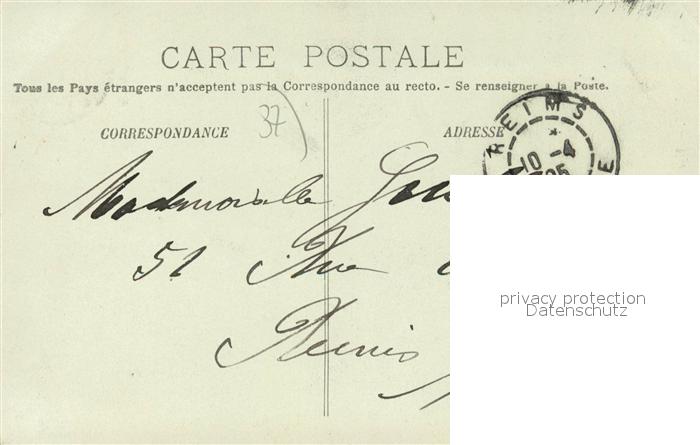 CARTE POSTALE
Tous les Pays étrangers n'acceptent pas la Correspondance au recto. - Se renseigner à la Poste.
37
CORRESPONDANCE
ADRESSE
REIMS
10 - 4
Mademoiselle
51 Rue
Reims
privacy protection
Datenschutz